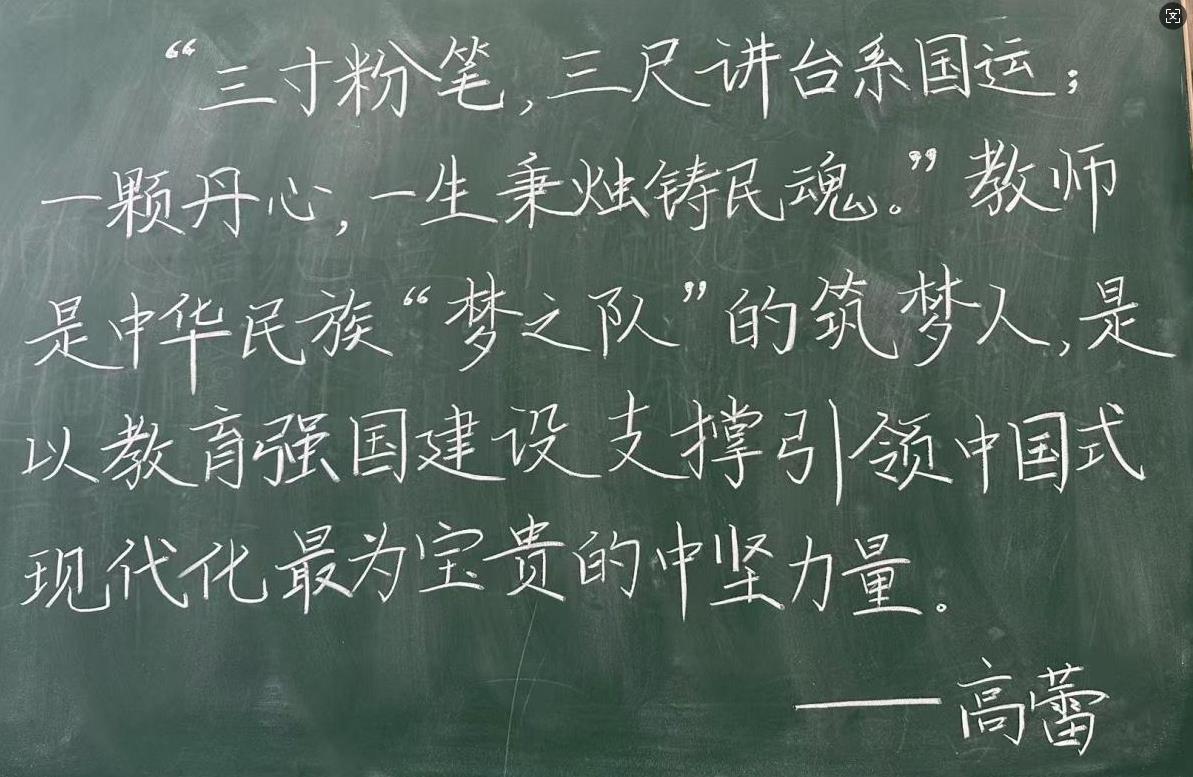 “三寸粉笔,三尺讲台系国运;
一颗丹心,一生秉烛铸民魂。”教师
是中华民族“梦之队”的筑梦人,是
以教育强国建设支撑引领中国式
现代化最为宝贵的中坚力量。
——高蕾